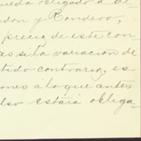 ueda obligado a
don y Rondero,
precio de este con
la variacion de
tido contrario, es
ones a lo que antes
estará obliga